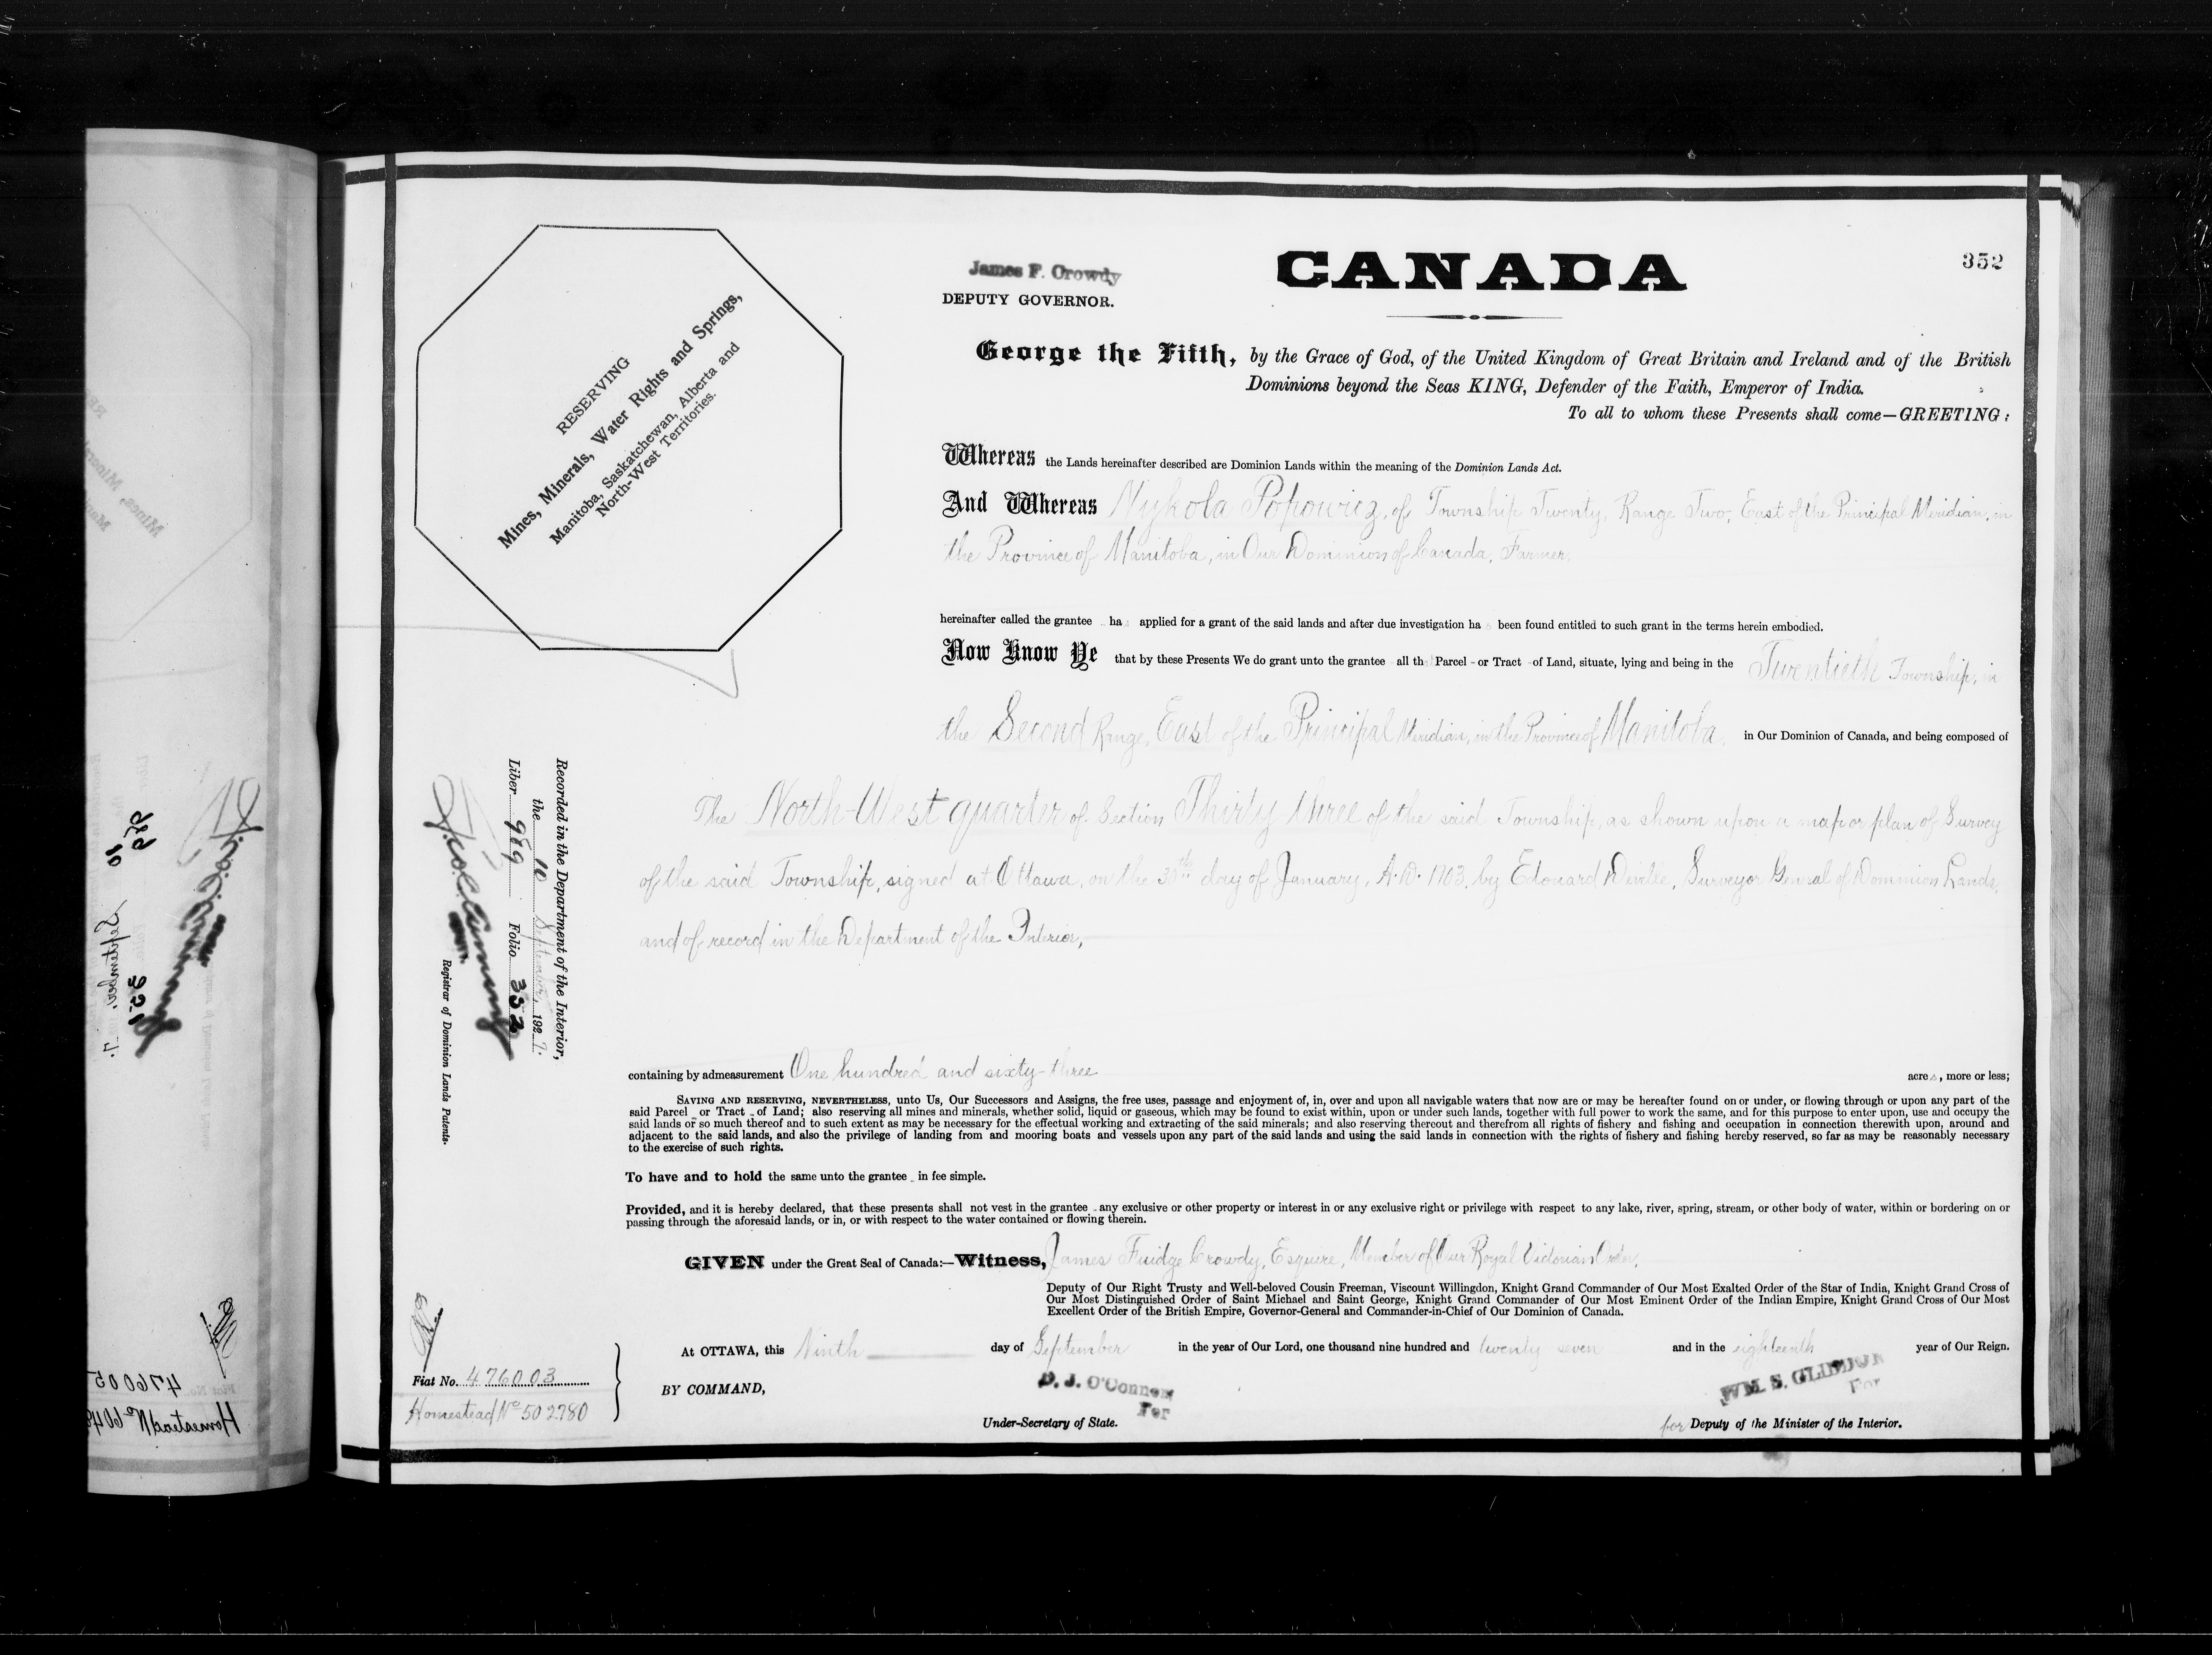 352
James F. Crowdy
DEPUTY GOVERNOR.
CANADA
George the Fifth, by the Grace of God, of the United Kingdom of Great Britain and Ireland and of the British
Dominions beyond the Seas KING, Defender of the Faith, Emperor of India.
To all to whom these Presents shall come—GREETING:
RESERVING
Mines, Minerals, Water Rights and Springs,
Manitoba, Saskatchewan, Alberta and
North-West Territories.
Whereas the Lands hereinafter described are Dominion Lands within the meaning of the Dominion Lands Act.
And Whereas Nykola Popowicz, of Township Twenty, Range Two, East of the Principal Meridian, in
the Province of Manitoba, in Our Dominion of Canada, Farmer,
hereinafter called the grantee has applied for a grant of the said lands and after due investigation has been found entitled to such grant in the terms herein embodied.
Now Know Ye that by these Presents We do grant unto the grantee all that Parcel - or Tract - of Land, situate, lying and being in the Twentieth Township, in
the Second Range, East of the Principal Meridian, in the Province of Manitoba, in Our Dominion of Canada, and being composed of
The North-West quarter of Section Thirty three of the said Township, as shown upon a map or plan of Survey
of the said Township, signed at Ottawa, on the 30th day of January, A.D. 1903, by Edouard Deville, Surveyor General of Dominion Lands,
and of record in the Department of the Interior,
Recorded in the Department of the Interior,
the 10 September, 1927.
Liber 989 Folio 352
Registrar of Dominion Lands Patents.
containing by admeasurement One hundred and sixty-three acres, more or less;
SAVING AND RESERVING, NEVERTHELESS, unto Us, Our Successors and Assigns, the free uses, passage and enjoyment of, in, over and upon all navigable waters that now are or may be hereafter found on or under, or flowing through or upon any part of the
said Parcel - or Tract - of Land; also reserving all mines and minerals, whether solid, liquid or gaseous, which may be found to exist within, upon or under such lands, together with full power to work the same, and for this purpose to enter upon, use and occupy the
said lands or so much thereof and to such extent as may be necessary for the effectual working and extracting of the said minerals; and also reserving thereout and therefrom all rights of fishery and fishing and occupation in connection therewith upon, around and
adjacent to the said lands, and also the privilege of landing from and mooring boats and vessels upon any part of the said lands and using the said lands in connection with the rights of fishery and fishing hereby reserved, so far as may be reasonably necessary
to the exercise of such rights.
To have and to hold the same unto the grantee - in fee simple.
Provided, and it is hereby declared, that these presents shall not vest in the grantee - any exclusive or other property or interest in or any exclusive right or privilege with respect to any lake, river, spring, stream, or other body of water, within or bordering on or
passing through the aforesaid lands, or in, or with respect to the water contained or flowing therein.
GIVEN under the Great Seal of Canada:—Witness, James Fuidge Crowdy, Esquire, Member of Our Royal Victorian Order,
Deputy of Our Right Trusty and Well-beloved Cousin Freeman, Viscount Willingdon, Knight Grand Commander of Our Most Exalted Order of the Star of India, Knight Grand Cross of
Our Most Distinguished Order of Saint Michael and Saint George, Knight Grand Commander of Our Most Eminent Order of the Indian Empire, Knight Grand Cross of Our Most
Excellent Order of the British Empire, Governor-General and Commander-in-Chief of Our Dominion of Canada.
At OTTAWA, this Ninth day of September in the year of Our Lord, one thousand nine hundred and twenty seven and in the eighteenth year of Our Reign.
Fiat No. 476003
Homestead No 502780
BY COMMAND,
D. J. O'Connor
For
Under-Secretary of State.
WM. S. GLIDDON
For
for Deputy of the Minister of the Interior.